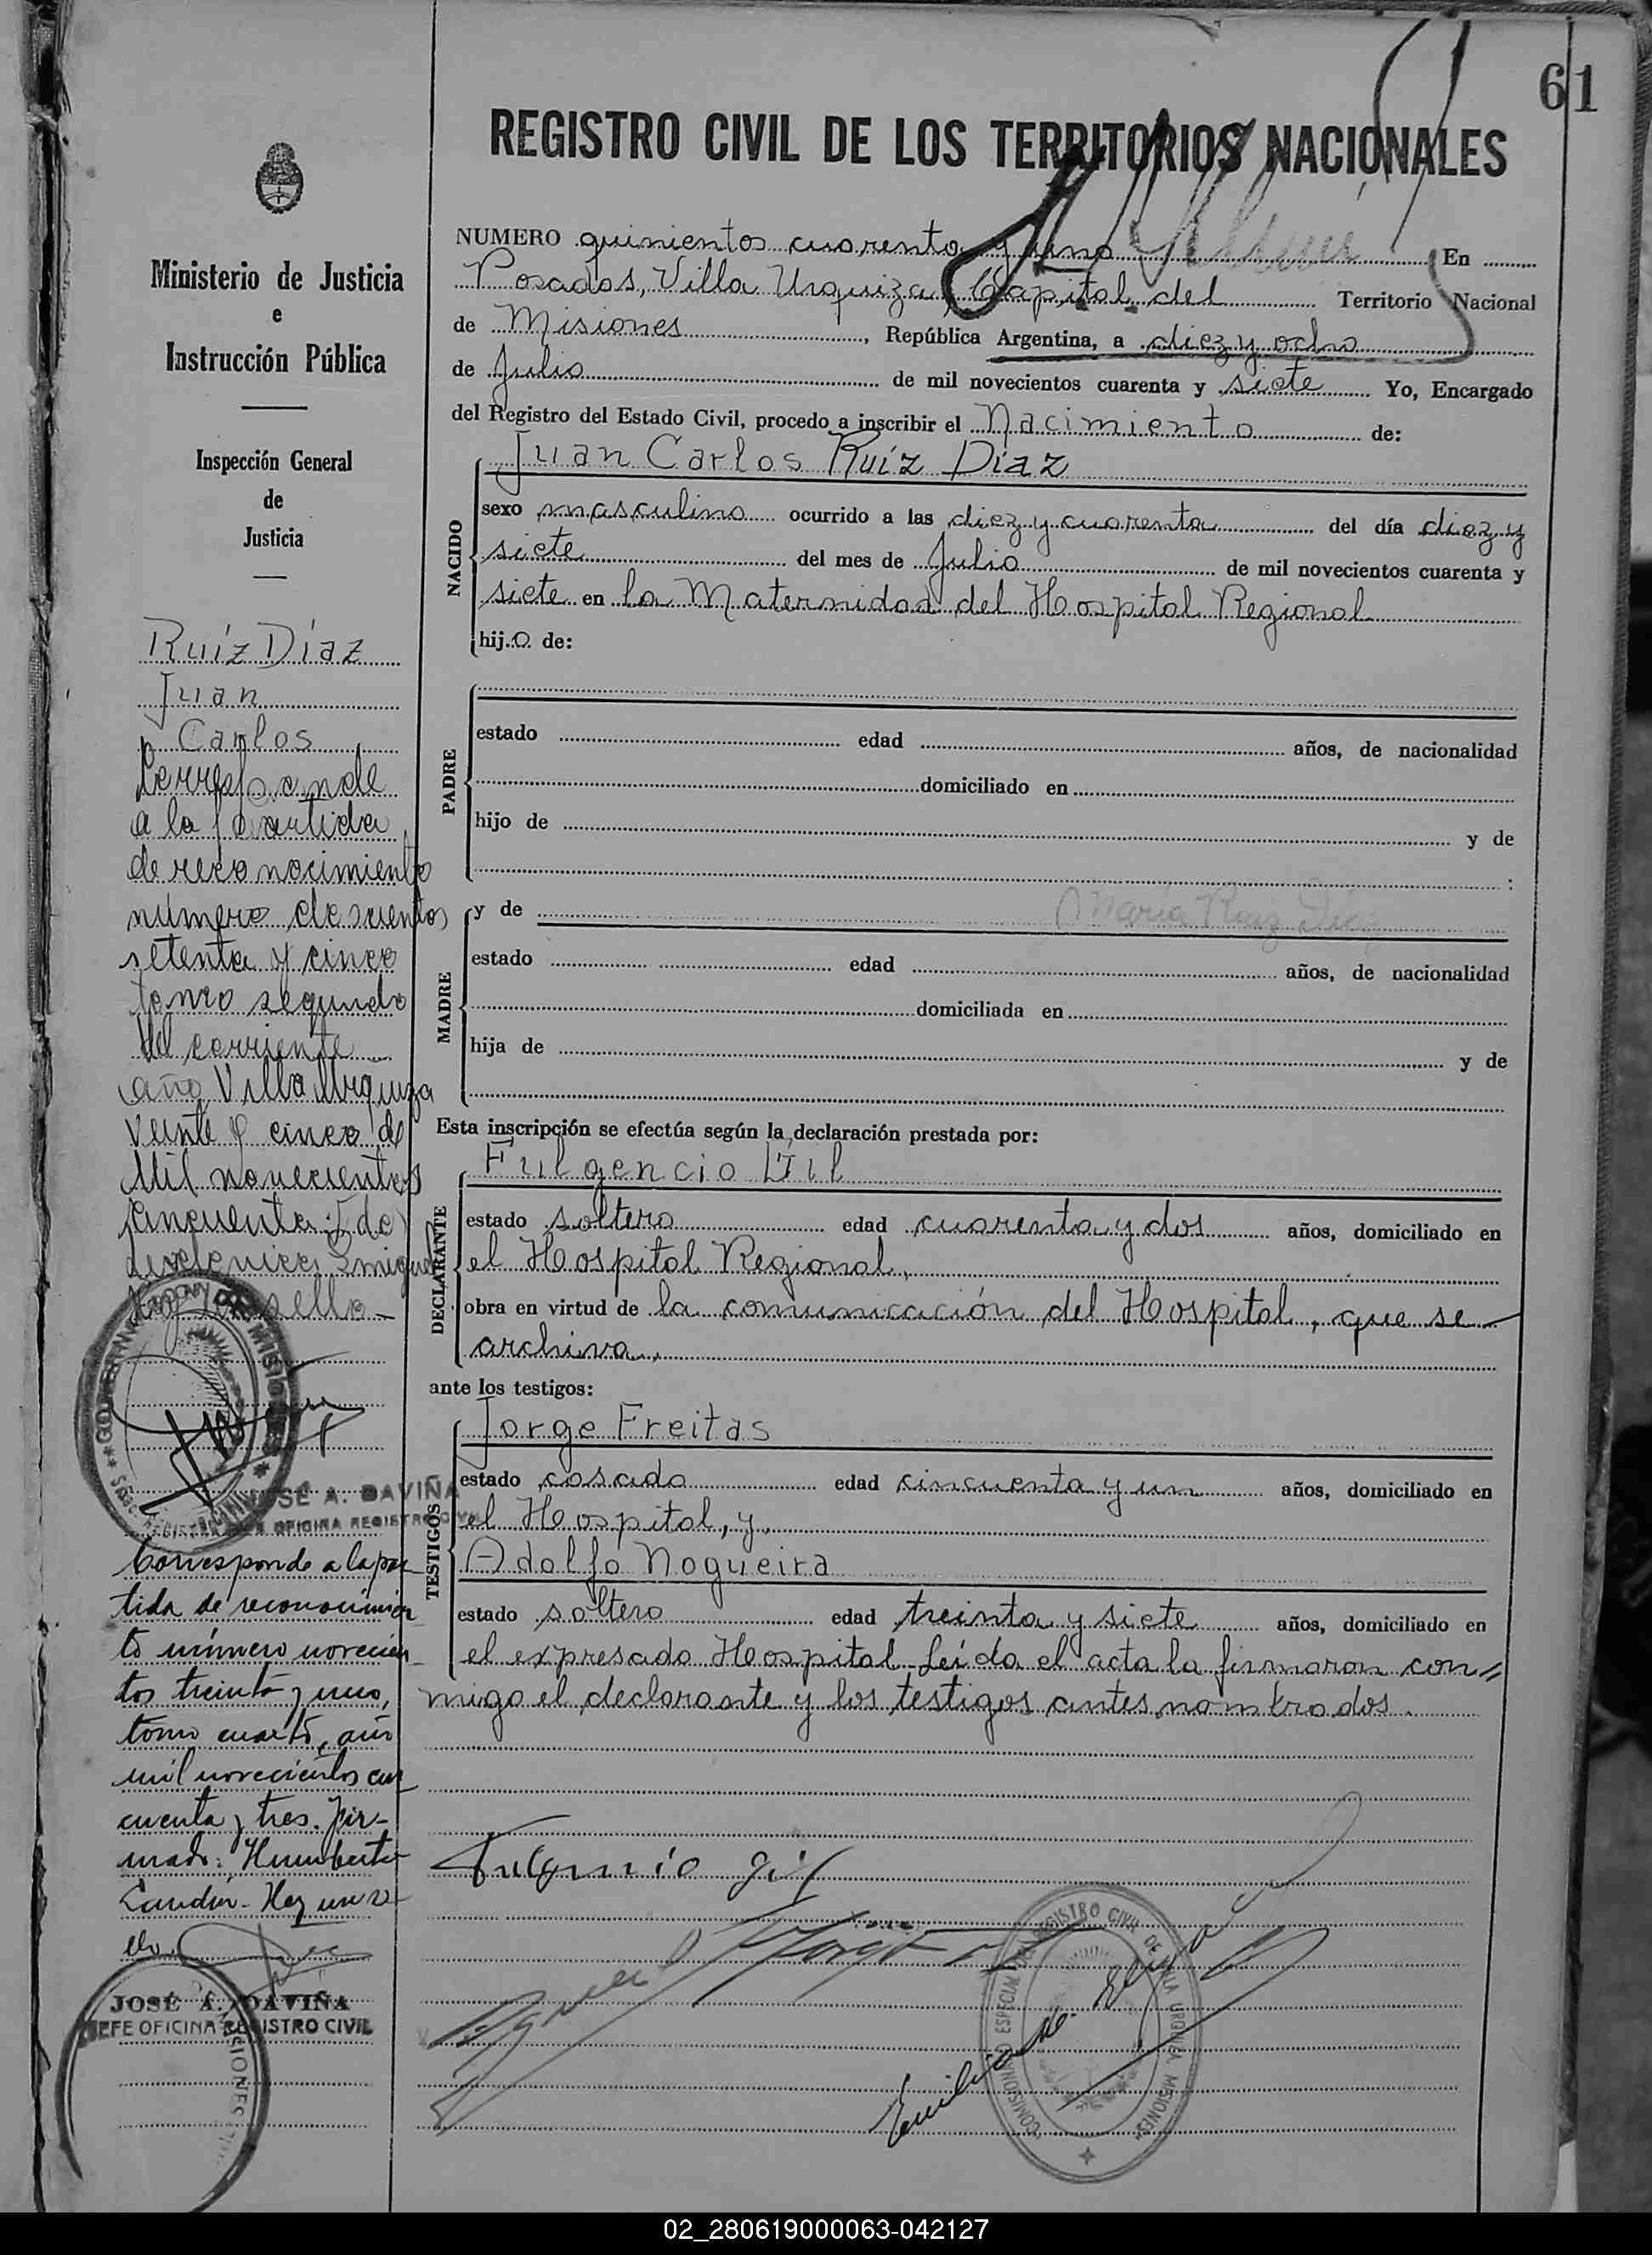 61
REGISTRO CIVIL DE LOS TERRITORIOS NACIONALES
NUMERO quinientos cuarenta y uno En
Posadas, Villa Urquiza, Capital del Territorio Nacional
de Misiones, República Argentina, a diez y ocho
de Julio de mil novecientos cuarenta y siete Yo, Encargado
del Registro del Estado Civil, procedo a inscribir el Nacimiento de:
NACIDO
Juan Carlos Ruíz Díaz
sexo masculino ocurrido a las diez y cuarenta del día diez y
siete del mes de Julio de mil novecientos cuarenta y
siete en la Maternidad del Hospital Regional
hijo de:
PADRE
estado edad años, de nacionalidad
domiciliado en
hijo de y de
:
MADRE
y de María Ruiz Díaz
estado edad años, de nacionalidad
domiciliada en
hija de y de
Esta inscripción se efectúa según la declaración prestada por:
DECLARANTE
Fulgencio Gil
estado soltero edad cuarenta y dos años, domiciliado en
el Hospital Regional,
obra en virtud de la comunicación del Hospital, que se
archiva,
ante los testigos:
TESTIGOS
Jorge Freitas
estado casado edad cincuenta y un años, domiciliado en
el Hospital, y,
Adolfo Nogueira
estado soltero edad treinta y siete años, domiciliado en
el expresado Hospital. Leída el acta la firmaron con=
migo el declarante y los testigos antes nombrados.
Fulgencio Gil
COMISIONADO ESPECIAL DEL REGISTRO CIVIL DE VILLA URQUIZA MISIONES
Ministerio de Justicia
e
Instrucción Pública
Inspección General
de
Justicia
Ruíz Díaz
Juan
Carlos
Corresponde
a la partida
de reconocimiento
número doscientos
setenta y cinco
tomo segundo
del corriente
año Villa Urquiza
veinte y cinco de
Mil novecientos
cincuenta
sello
GOBERNACION DE MISIONES
JOSÉ A. DAVIÑA
JEFE OFICINA REGISTRO CIVIL
Corresponde a la par
tida de reconocimien
to número novecien
tos treinta y uno,
tomo cuarto, año
mil novecientos cin
cuenta y tres. Fir-
mado: Humberto
Landin - Hay un se
llo.
JOSÉ A. DAVIÑA
JEFE OFICINA REGISTRO CIVIL
MISIONES
02_280619000063-042127